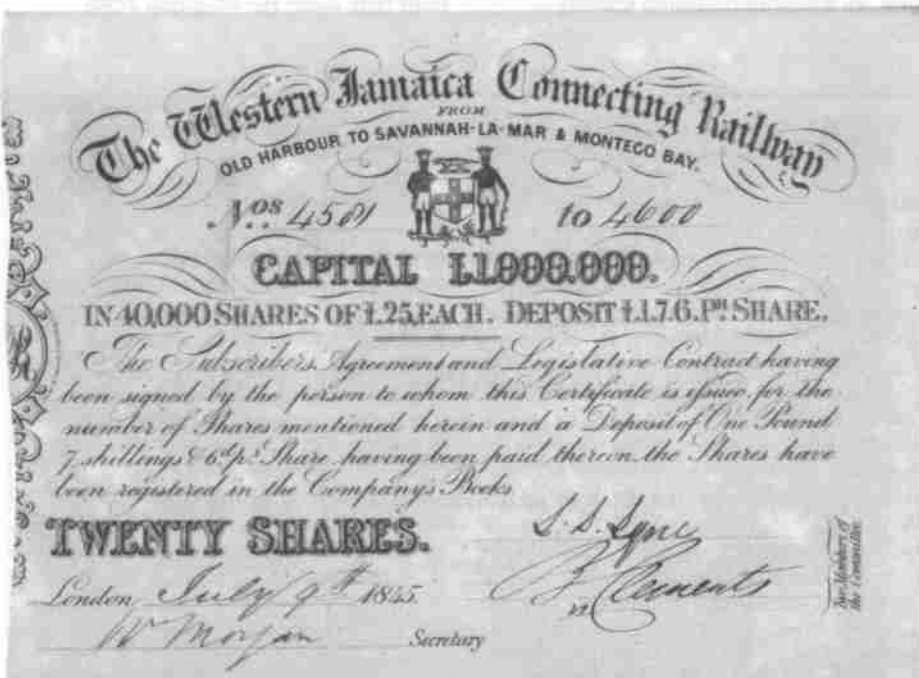 The Western Jamaica Connecting Railway
FROM
OLD HARBOUR TO SAVANNAH-LA-MAR & MONTEGO BAY.
Nos. 4581 to 4600
CAPITAL £1000.000.
IN 40,000 SHARES OF £.25,EACH. DEPOSIT £.1.7.6. Pr. SHARE.
The Subscribers Agreement and Legislative Contract having
been signed by the person to whom this Certificate is issued for the
number of Shares mentioned herein and a Deposit of One Pound
7 shillings & 6d. pr. Share having been paid thereon, the Shares have
been registered in the Companys Books
TWENTY SHARES.
London, July 9th 1845
Wm Morgan Secretary
Clements
Two Members of
the Committee